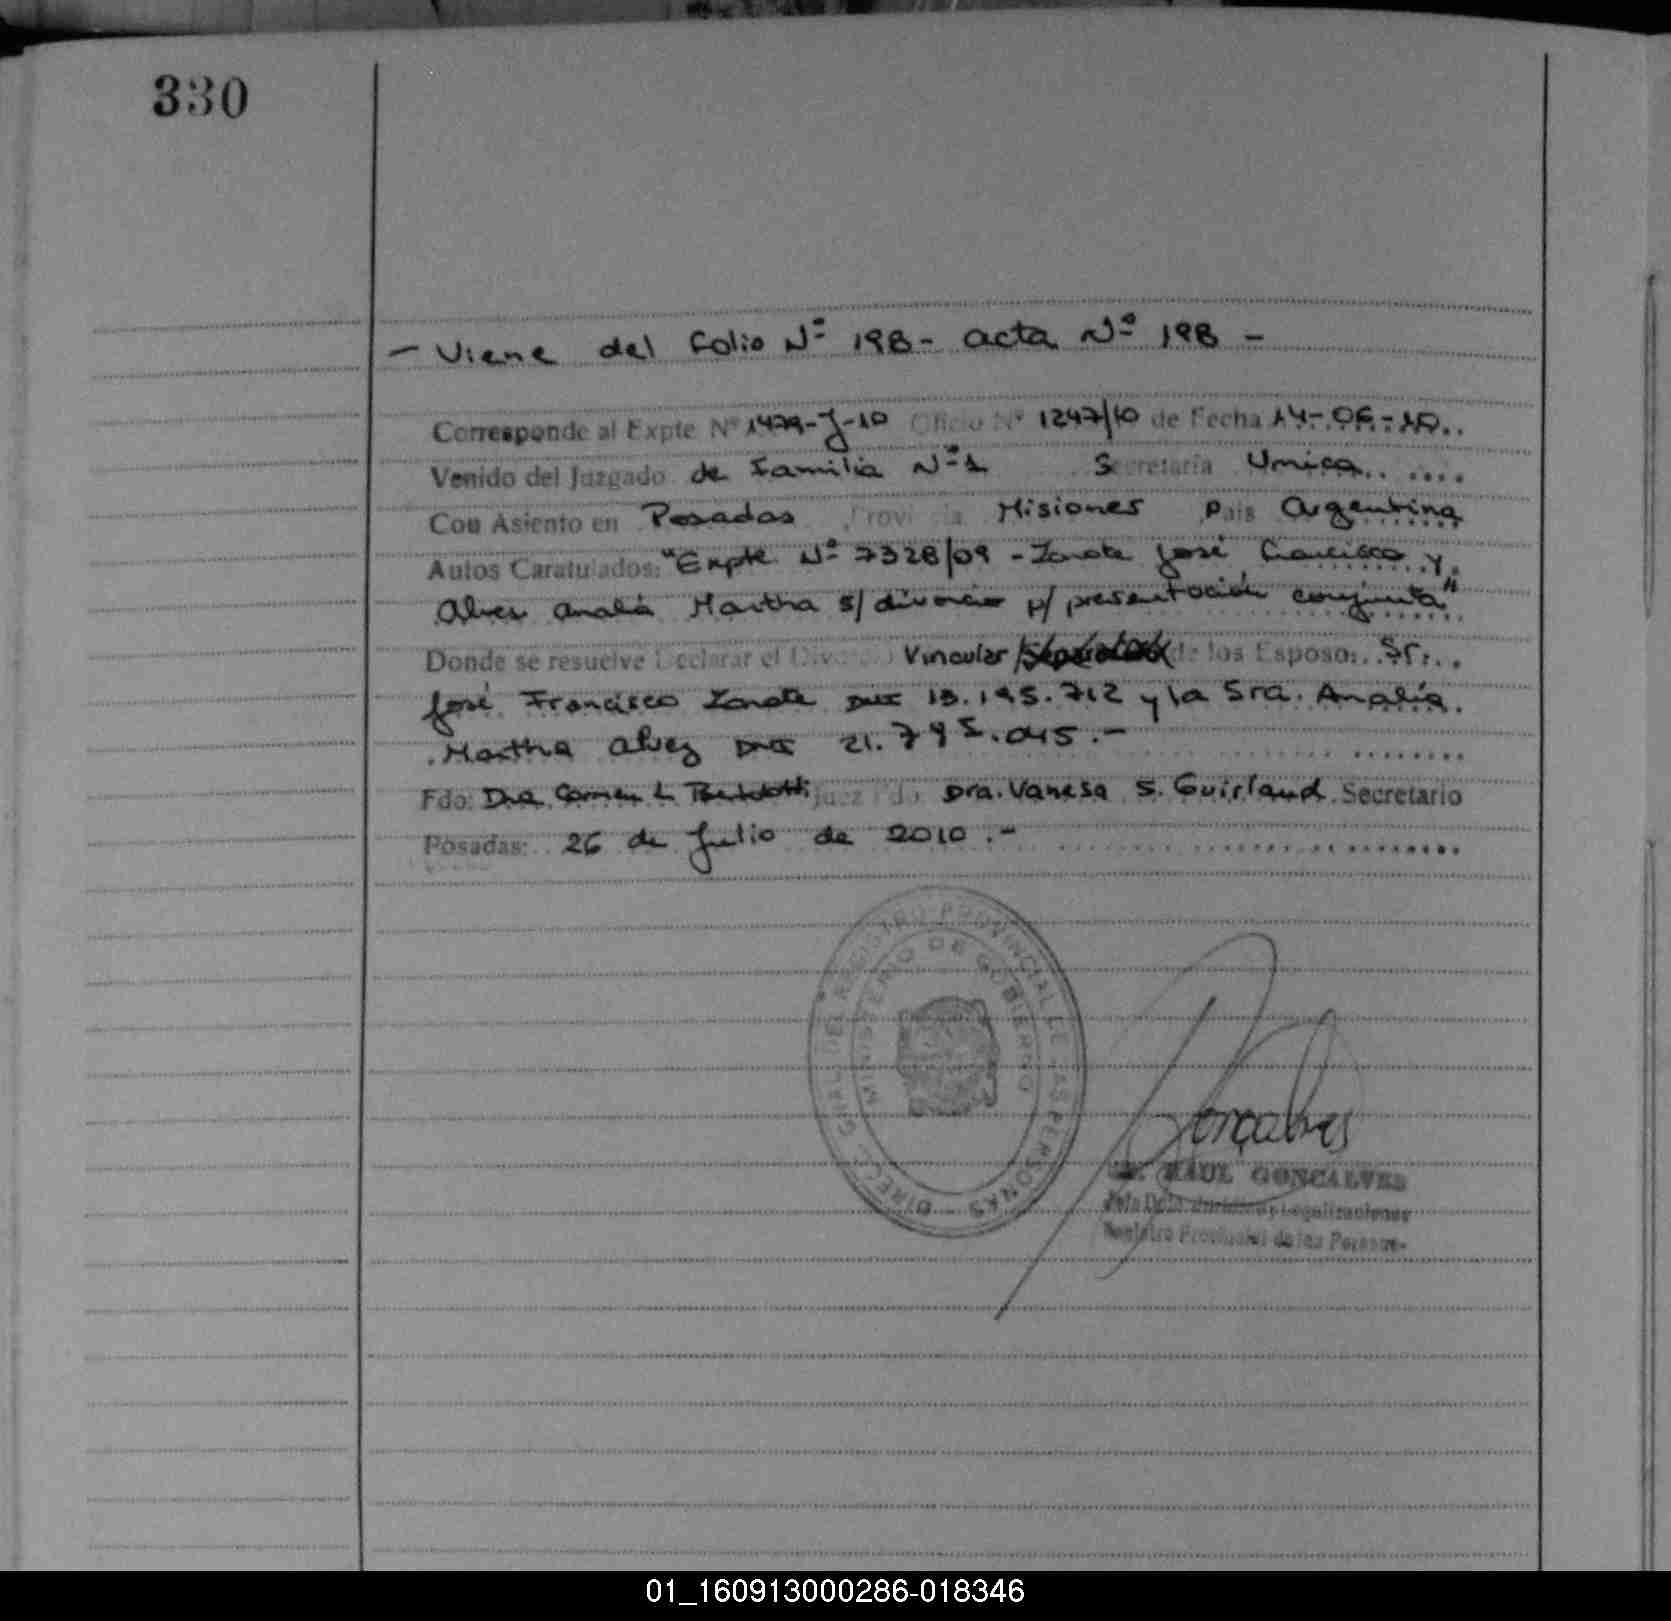 330
- Viene del folio Nº 198 - acta Nº 198 -
Corresponde al Expte Nº 1479-J-10 Oficio Nº 1247/10 de Fecha 14-06-10..
Venido del Juzgado de Familia Nº 1 Secretaría Unica
Con Asiento en Posadas Provincia Misiones País Argentina
Autos Caratulados: "Expte Nº 7328/09 - Zarate José Francisco y
Alvez Analia Martha s/ divorcio p/ presentación conjunta"
Donde se resuelve Declarar el Divorcio Vincular / de los Esposos: Sr.
José Francisco Zarate DNI 13.195.712 y la Sra. Analía
Martha Alvez DNI 21.795.045.-
Fdo: Dra Carmen L. Juez Fdo. Dra. Vanesa S. Guirland Secretario
Posadas: 26 de Julio de 2010.-
DIREC. GRAL. DEL REGISTRO PROVINCIAL DE LAS PERSONAS -
MINISTERIO DE GOBIERNO
Gonçalves
RAUL GONCALVES
Jefe Dpto. Jurídico y Legalizaciones
Registro Provincial de las Personas
01_160913000286-018346